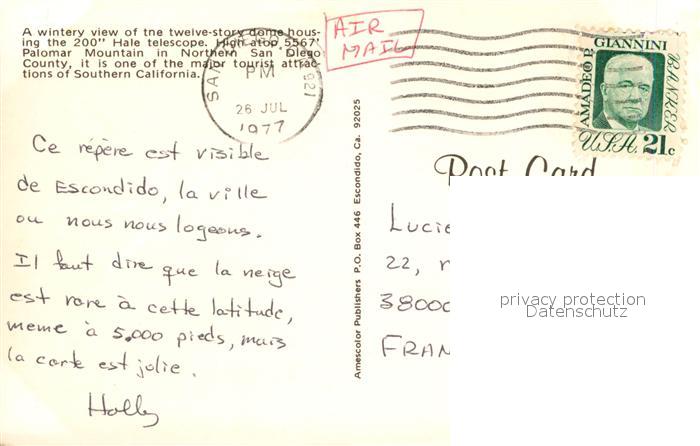 A wintery view of the twelve-story dome hous-
ing the 200" Hale telescope. High atop 5567'
Palomar Mountain in Northern San Diego
County, it is one of the major tourist attrac-
tions of Southern California.
AIR
MAIL
SAN
PM
921
26 JUL
1977
AMADEO P. GIANNINI
BANKER
U.S.A. 21c
Post Card
Ce répère est visible
de Escondido, la ville
ou nous nous logeons.
Il faut dire que la neige
est rare à cette latitude,
meme à 5,000 pieds, mais
la carte est jolie.
Holly
Amescolor Publishers P.O. Box 446 Escondido, Ca. 92025
Lucie
22, r
38000
FRAN
privacy protection
Datenschutz